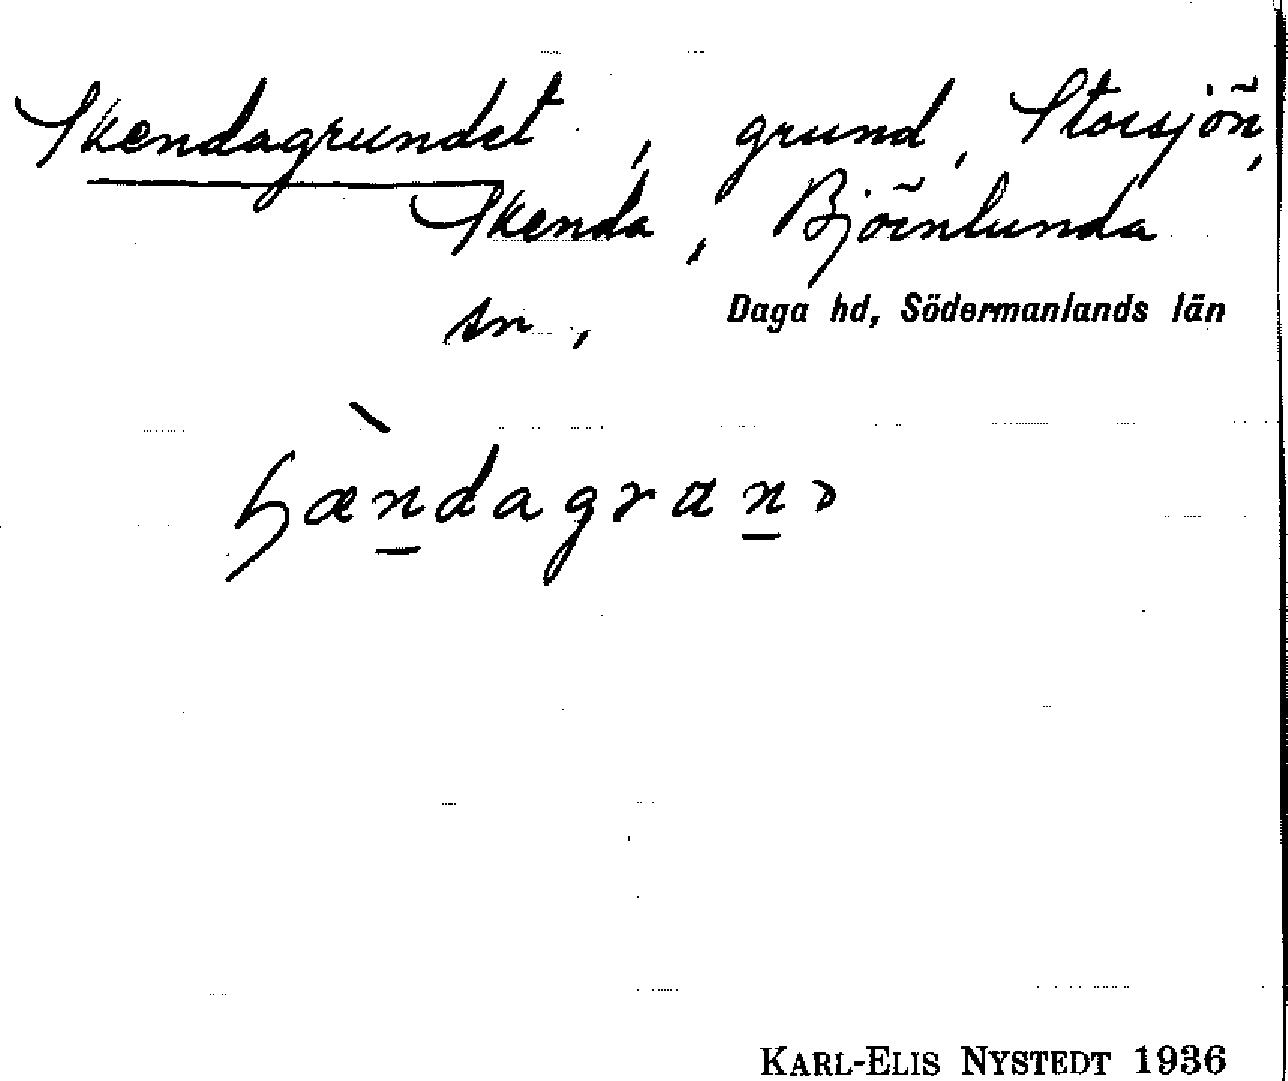 Skendagrundet, grund, Storsjön,
Skenda, Björnlunda
sn, Daga hd, Södermanlands län
KARL-ELIS NYSTEDT 1936